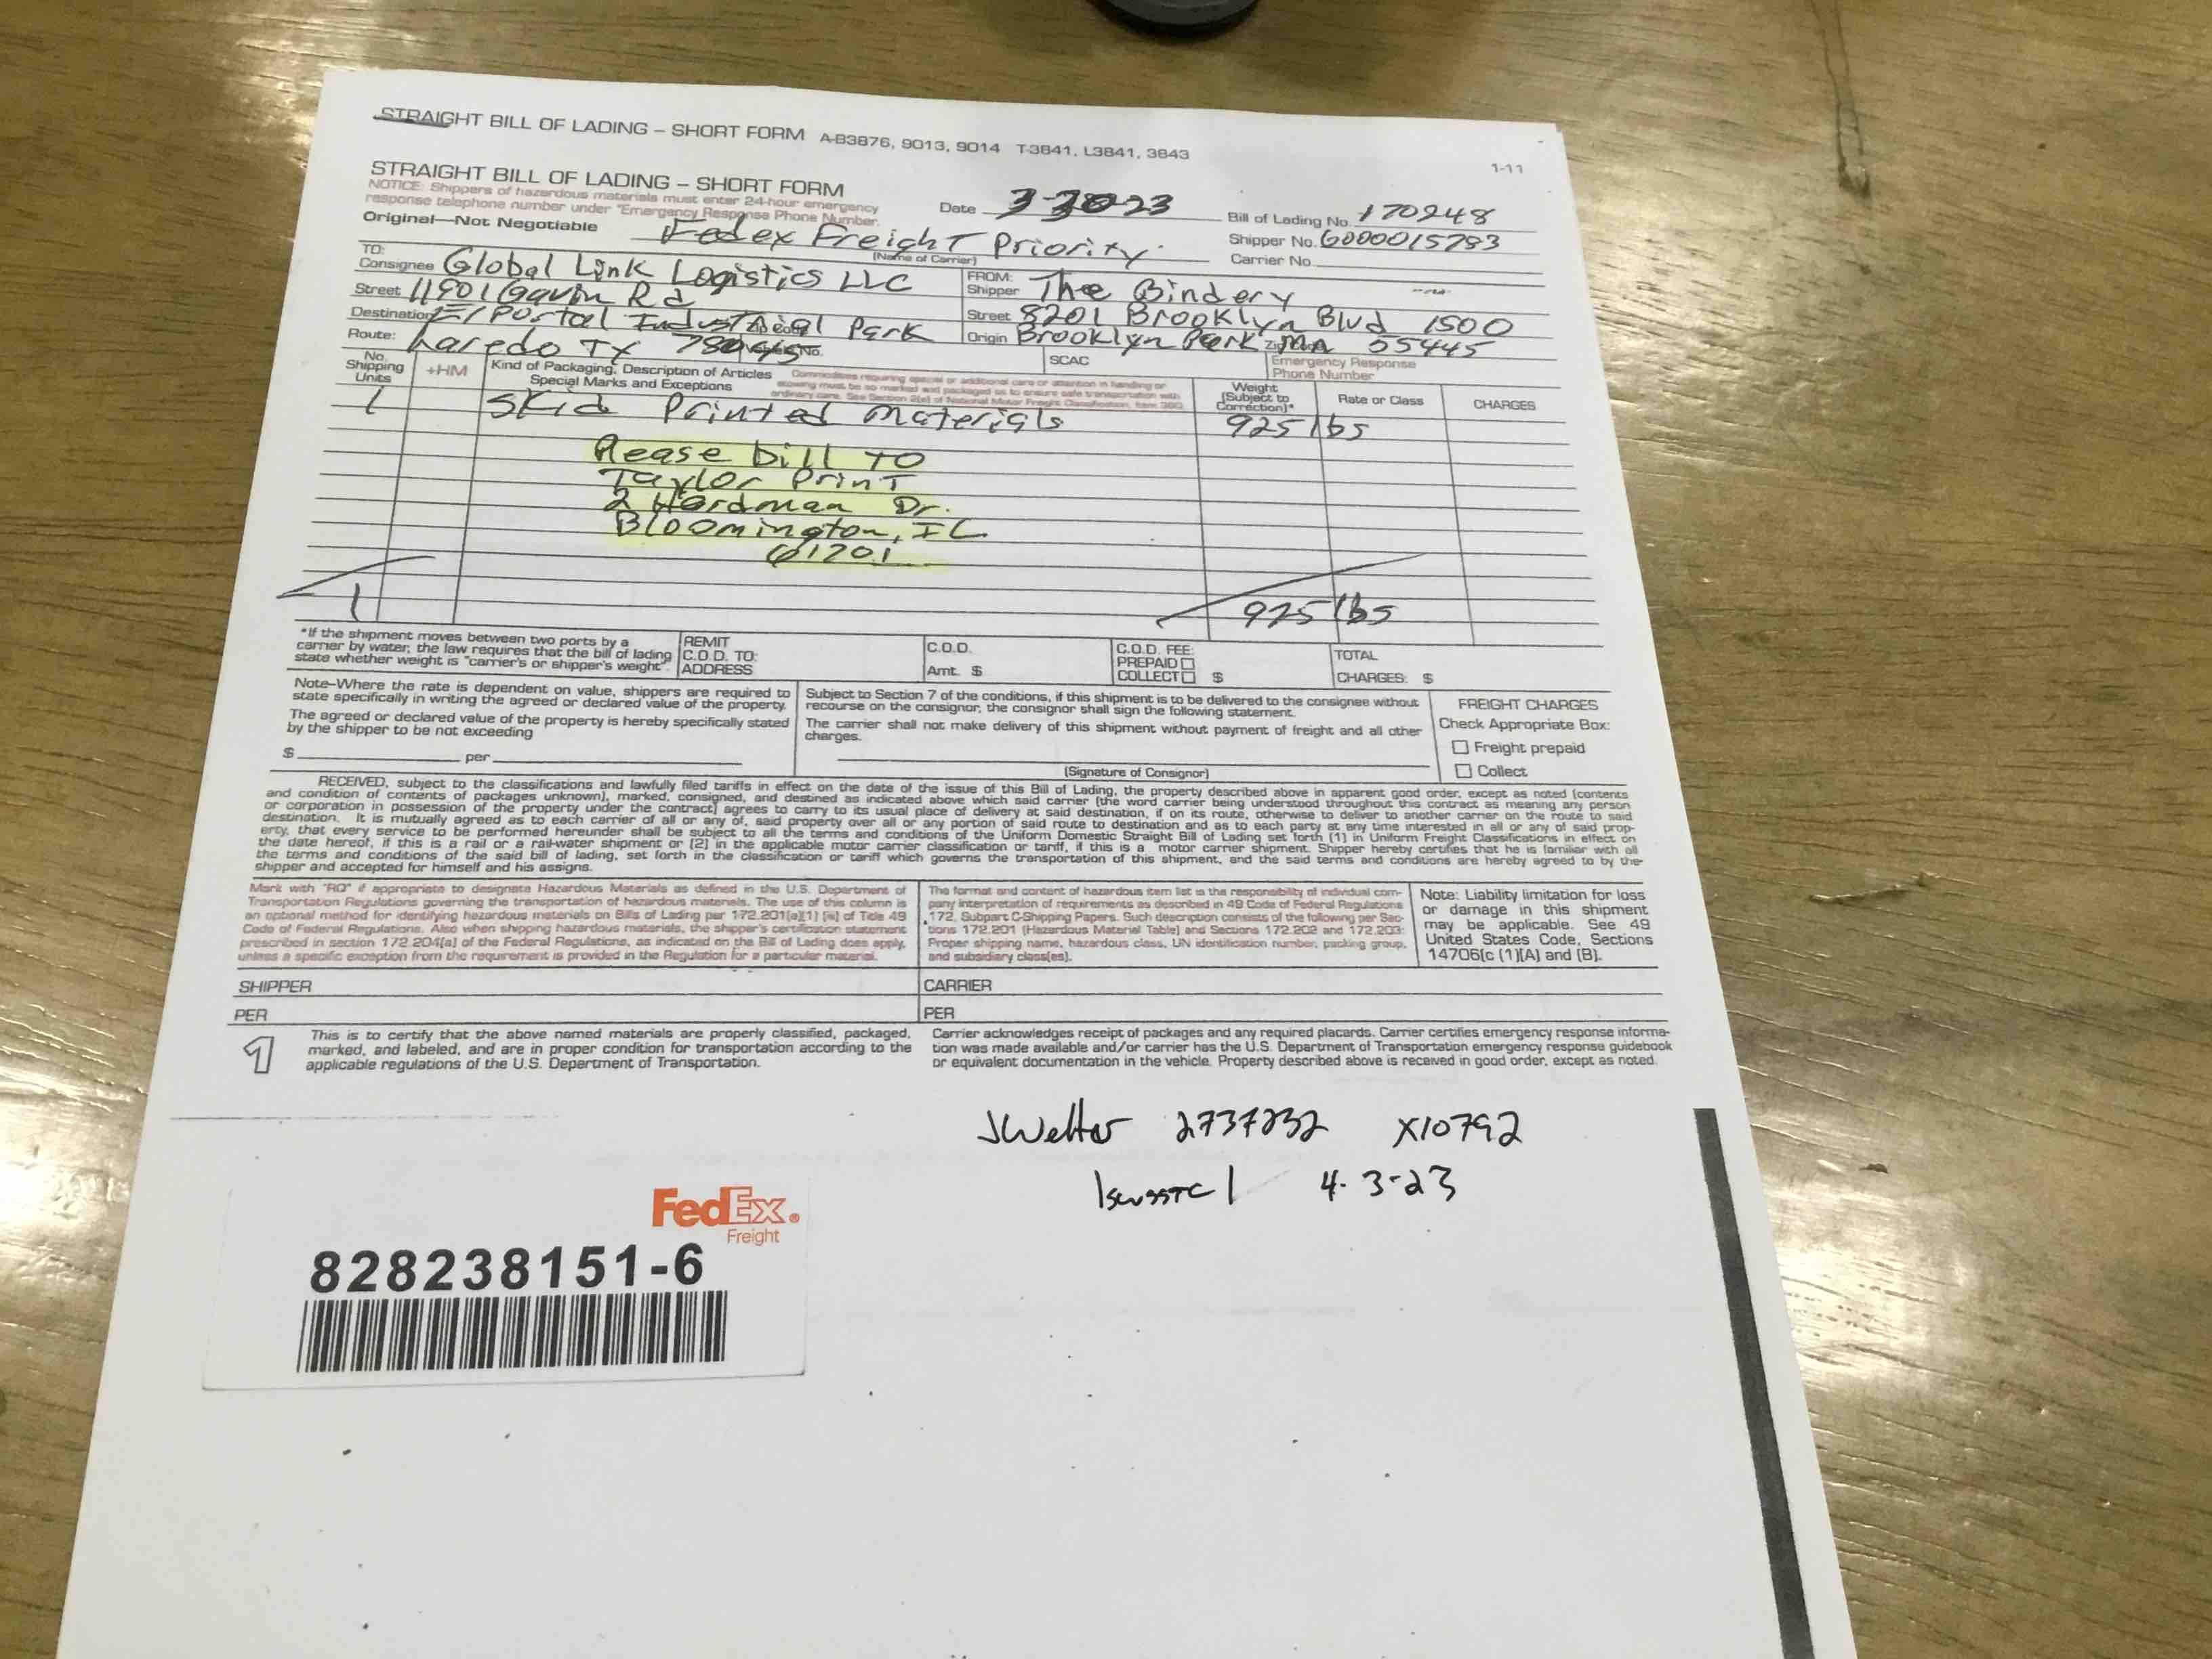 STRAIGHT BILL OF LADING – SHORT FORM A-B3876, 9013, 9014 T-3841, L3841, 3843
1-11
STRAIGHT BILL OF LADING – SHORT FORM
NOTICE: Shippers of hazardous materials must enter 24-hour emergency
response telephone number under "Emergency Response Phone Number.
Original—Not Negotiable
Date 23
Bill of Lading No. 170248
Shipper No. 6000015783
Carrier No.
Fedex Freight Priority
(Name of Carrier)
TO:
Consignee Global Link Logistics LLC
Street 11901 Gavin Rd
Destination El Portal Industrial Park
Route: Laredo TX
FROM:
Shipper The Bindery
Street 8201 Brooklyn Blvd 1500
Origin Brooklyn Park MN 55445
SCAC
Emergency Response
Phone Number
No.
Shipping
Units
+HM
Kind of Packaging, Description of Articles
Special Marks and Exceptions
Commodities requiring special or additional care or attention in handling or
stowing must be so marked and packaged as to ensure safe transportation with
ordinary care. See Section 2(e) of National Motor Freight Classification, Item 360
Weight
(Subject to
Correction)*
Rate or Class
CHARGES
1 Skid Printed Materials 925 lbs
Please bill to
Taylor Print
2 Hardman Dr.
Bloomington, IL
61701
1 925 lbs
*If the shipment moves between two ports by a
carrier by water, the law requires that the bill of lading
state whether weight is "carrier's or shipper's weight".
REMIT
C.O.D. TO:
ADDRESS
C.O.D.
Amt. $
C.O.D. FEE:
PREPAID
COLLECT $
TOTAL
CHARGES: $
Note–Where the rate is dependent on value, shippers are required to
state specifically in writing the agreed or declared value of the property.
The agreed or declared value of the property is hereby specifically stated
by the shipper to be not exceeding
$ per
Subject to Section 7 of the conditions, if this shipment is to be delivered to the consignee without
recourse on the consignor, the consignor shall sign the following statement.
The carrier shall not make delivery of this shipment without payment of freight and all other
charges.
(Signature of Consignor)
FREIGHT CHARGES
Check Appropriate Box:
Freight prepaid
Collect
RECEIVED, subject to the classifications and lawfully filed tariffs in effect on the date of the issue of this Bill of Lading, the property described above in apparent good order, except as noted (contents
and condition of contents of packages unknown), marked, consigned, and destined as indicated above which said carrier (the word carrier being understood throughout this contract as meaning any person
or corporation in possession of the property under the contract) agrees to carry to its usual place of delivery at said destination, if on its route, otherwise to deliver to another carrier on the route to said
destination. It is mutually agreed as to each carrier of all or any of, said property over all or any portion of said route to destination and as to each party at any time interested in all or any of said prop-
erty, that every service to be performed hereunder shall be subject to all the terms and conditions of the Uniform Domestic Straight Bill of Lading set forth (1) in Uniform Freight Classifications in effect on
the date hereof, if this is a rail or a rail-water shipment or (2) in the applicable motor carrier classification or tariff, if this is a motor carrier shipment. Shipper hereby certifies that he is familiar with all
the terms and conditions of the said bill of lading, set forth in the classification or tariff which governs the transportation of this shipment, and the said terms and conditions are hereby agreed to by the
shipper and accepted for himself and his assigns.
Mark with "RQ" if appropriate to designate Hazardous Materials as defined in the U.S. Department of
Transportation Regulations governing the transportation of hazardous materials. The use of this column is
an optional method for identifying hazardous materials on Bills of Lading per 172.201(a)(1) (iii) of Title 49
Code of Federal Regulations. Also when shipping hazardous materials, the shipper's certification statement
prescribed in section 172.204(a) of the Federal Regulations, as indicated on the Bill of Lading does apply,
unless a specific exception from the requirement is provided in the Regulation for a particular material.
The format and content of hazardous item list is the responsibility of individual com-
pany interpretation of requirements as described in 49 Code of Federal Regulations
172, Subpart C-Shipping Papers. Such description consists of the following per Sec-
tions 172.201 (Hazardous Material Table) and Sections 172.202 and 172.203:
Proper shipping name, hazardous class, UN identification number, packing group,
and subsidiary class(es).
Note: Liability limitation for loss
or damage in this shipment
may be applicable. See 49
United States Code, Sections
14706(c (1)(A) and (B).
SHIPPER
CARRIER
PER
PER
1
This is to certify that the above named materials are properly classified, packaged,
marked, and labeled, and are in proper condition for transportation according to the
applicable regulations of the U.S. Department of Transportation.
Carrier acknowledges receipt of packages and any required placards. Carrier certifies emergency response informa-
tion was made available and/or carrier has the U.S. Department of Transportation emergency response guidebook
or equivalent documentation in the vehicle. Property described above is received in good order, except as noted.
JWelter 2737232 X10792
4-3-23
FedEx®
Freight
828238151-6